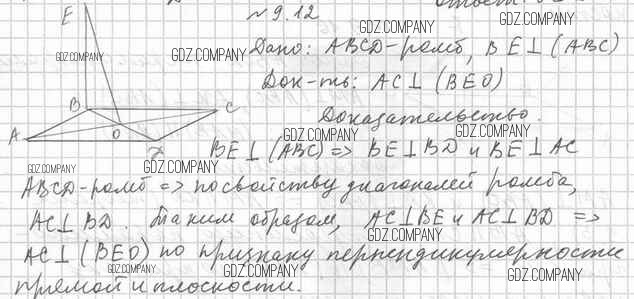 № 9.12
Дано: ABCD-ромб, BE⊥(ABC)
Док-ть: AC⊥(BEO)
Доказательство.
BE⊥(ABC) => BE⊥BD и BE⊥AC
ABCD-ромб => по свойству диагоналей ромба,
AC⊥BD. Таким образом, AC⊥BE и AC⊥BD =>
AC⊥(BEO) по признаку перпендикулярности
прямой и плоскости.
E
B
C
A
O
D
GDZ.COMPANY
GDZ.COMPANY
GDZ.COMPANY
GDZ.COMPANY
GDZ.COMPANY
GDZ.COMPANY
GDZ.COMPANY
GDZ.COMPANY
GDZ.COMPANY
GDZ.COMPANY
GDZ.COMPANY
GDZ.COMPANY